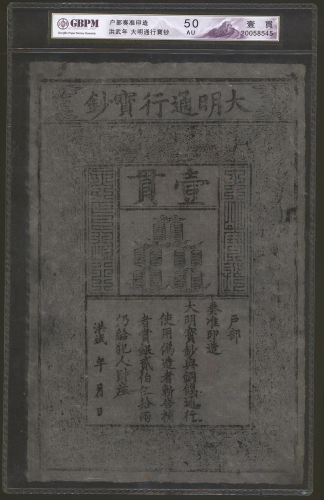 GBPM
户部奏准印造
洪武年 大明通行寶鈔
50
AU
壹 貫
20058545
大明通行寶鈔
壹貫
户部
奏准印造
大明寶鈔與銅錢通行
使用偽造者斬告捕
者賞銀貳伯伍拾兩
仍給犯人財產
洪武 年 月 日